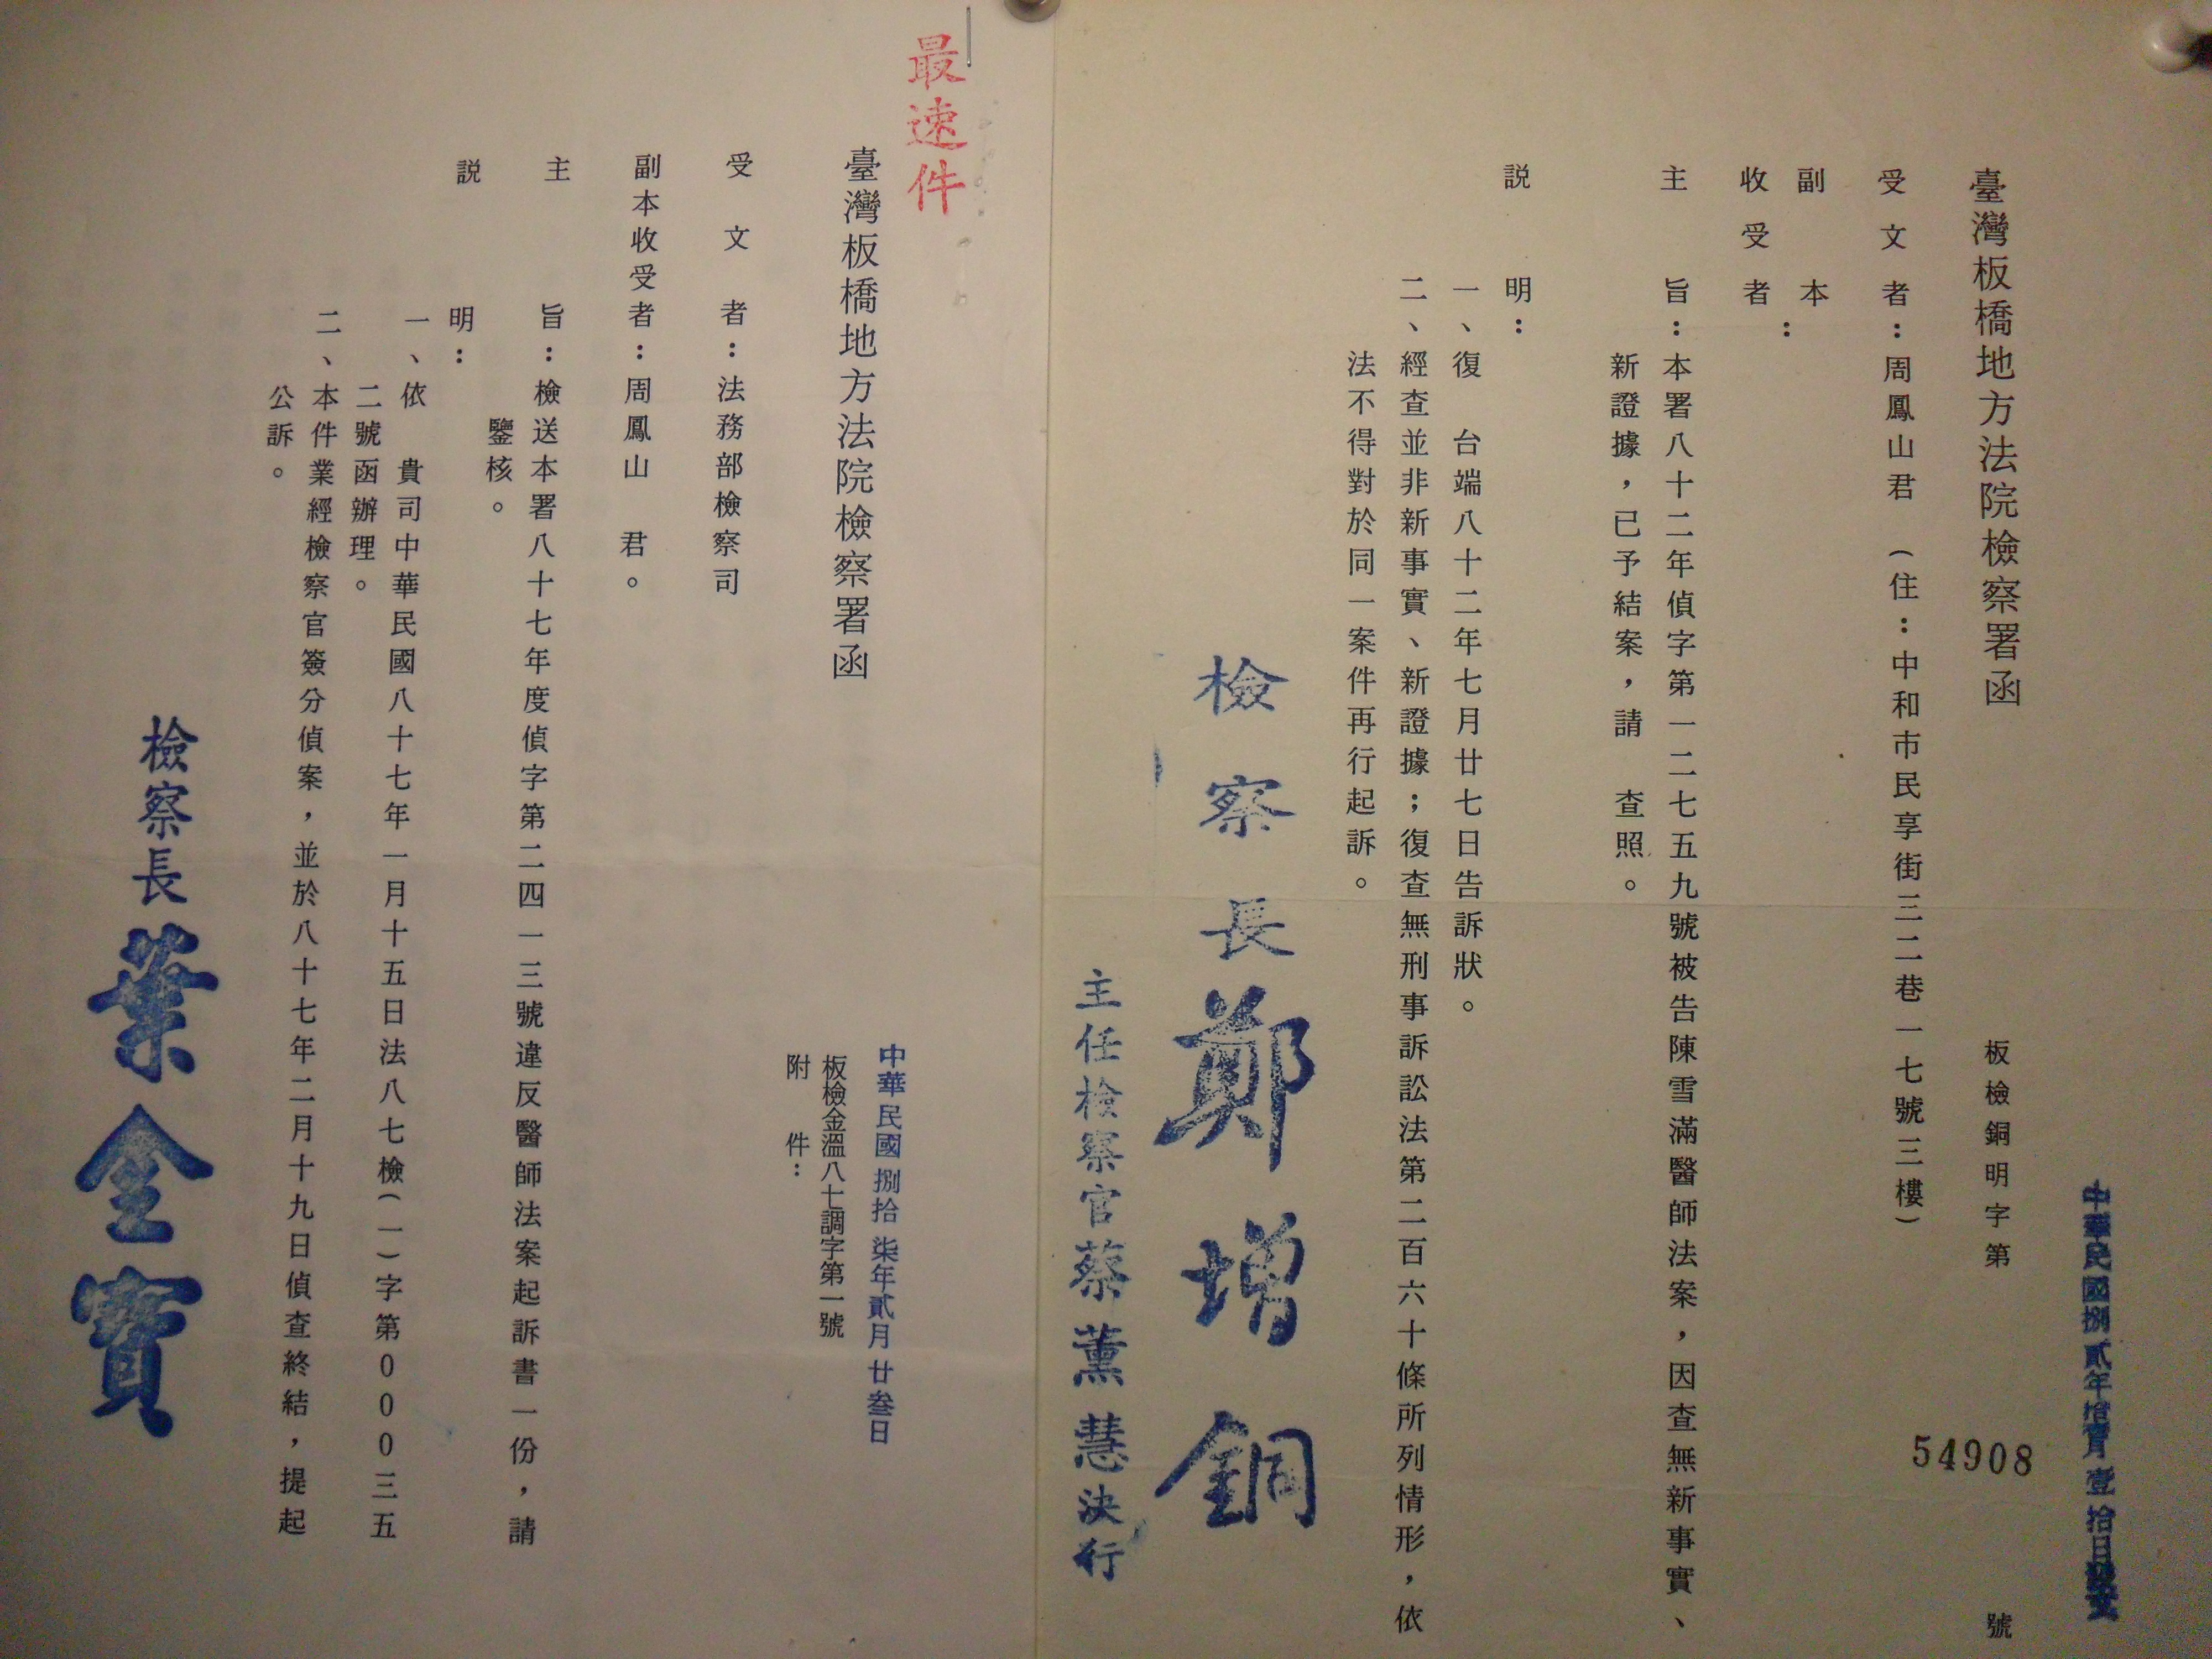 臺灣板橋地方法院檢察署函
板檢銅明字第
54908
號
受文者：周鳳山君　（住：中和市民享街三二巷一七號三樓）
副本
收受者：
主旨：本署八十二年偵字第一二七五九號被告陳雪滿醫師法案，因查無新事實、
新證據，已予結案，請　查照。
説明：
一、復　台端八十二年七月廿七日告訴狀。
二、經查並非新事實、新證據；復查無刑事訴訟法第二百六十條所列情形，依
法不得對於同一案件再行起訴。
檢察長鄭增銅
主任檢察官蔡薰慧決行
最速件
臺灣板橋地方法院檢察署函
中華民國捌拾柒年貳月廿叁日
板檢金溫八七調字第一號
附件：
受文者：法務部檢察司
副本收受者：周鳳山　君。
主旨：檢送本署八十七年度偵字第二四一三號違反醫師法案起訴書一份，請
鑒核。
説明：
一、依　貴司中華民國八十七年一月十五日法八七檢（一）字第000三五
二號函辦理。
二、本件業經檢察官簽分偵案，並於八十七年二月十九日偵查終結，提起
公訴。
檢察長葉金寶